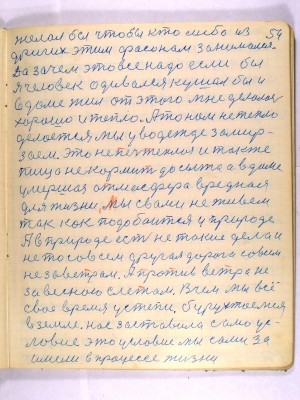 54
желал бы чтобы кто либо из
других этим фасоном занимался.
Да зачем это все надо если бы
я человек одивался кушал бы и
в доме жил от этого мне делалось
хорошо и тепло. А то нам не тепло
делоется мы у водежде замир-
заем. Это не печ теплоя и также
пища не кормит досыта а в доме
умершая атмосфера вредная
для жизни, Мы свами не живем
так как подобоится у природе
А в природе есть не такие дела и
не то совсем другая дорога совсем
не заветрам. А против ветра не
завесною слетам. В чем мы всё
своё время успепи,
в земле. нас заставила само ус-
ловие это условие мы сами за
имели в процессе жизни